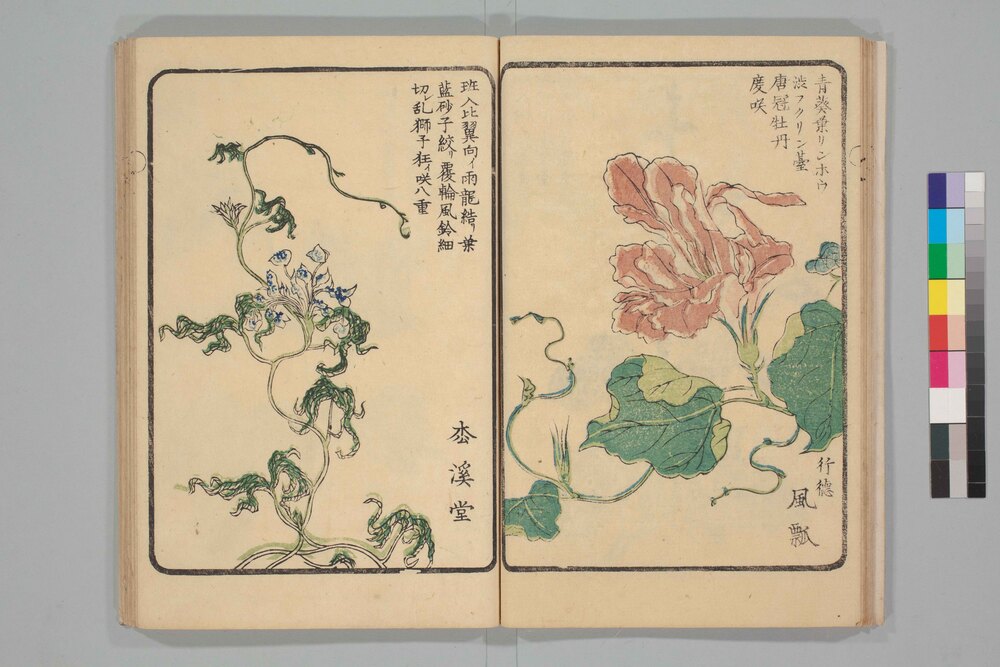 青葵葉リンホウ
渋フクリン臺
唐冠牡丹
度咲
行德
風瓢
班入比翼向イ雨龍結リ葉
藍砂子絞リ覆輪風鈴細
切レ乱獅子狂イ咲八重
枩溪堂